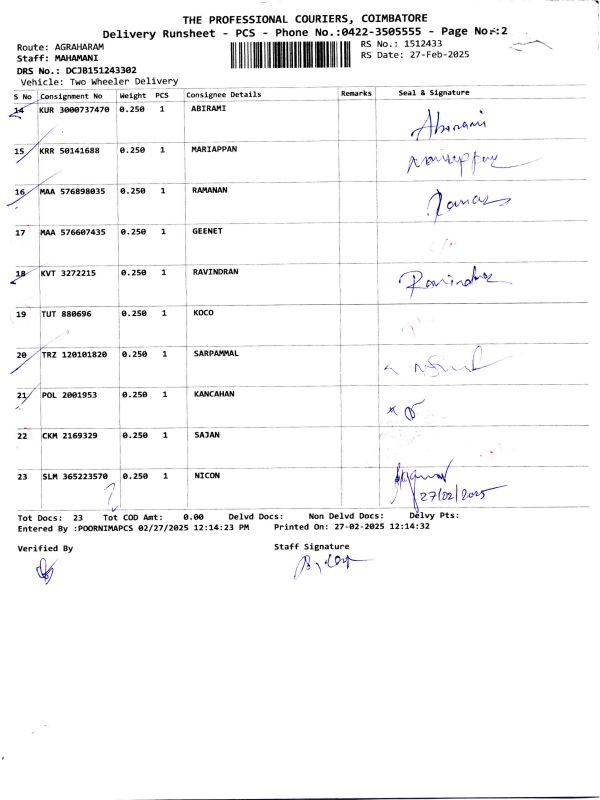 THE PROFESSIONAL COURIERS, COIMBATORE
Delivery Runsheet - PCS - Phone No.:0422-3505555 - Page No.:2
Route: AGRAHARAM RS No.: 1512433
Staff: MAHAMANI RS Date: 27-Feb-2025
DRS No.: DCJB151243302
Vehicle: Two Wheeler Delivery
S No Consignment No Weight PCS Consignee Details Remarks Seal & Signature
14 KUR 3000737470 0.250 1 ABIRAMI Abirami
15 KRR 50141688 0.250 1 MARIAPPAN Mariappan
16 MAA 576898035 0.250 1 RAMANAN
17 MAA 576607435 0.250 1 GEENET
18 KVT 3272215 0.250 1 RAVINDRAN
19 TUT 880696 0.250 1 KOCO
20 TRZ 120101820 0.250 1 SARPAMMAL
21 POL 2001953 0.250 1 KANCAHAN
22 CKM 2169329 0.250 1 SAJAN
23 SLM 365223570 0.250 1 NICON
27/02/2025
Tot Docs: 23 Tot COD Amt: 0.00 Delvd Docs: Non Delvd Docs: Delvy Pts:
Entered By :POORNIMAPCS 02/27/2025 12:14:23 PM Printed On: 27-02-2025 12:14:32
Verified By Staff Signature